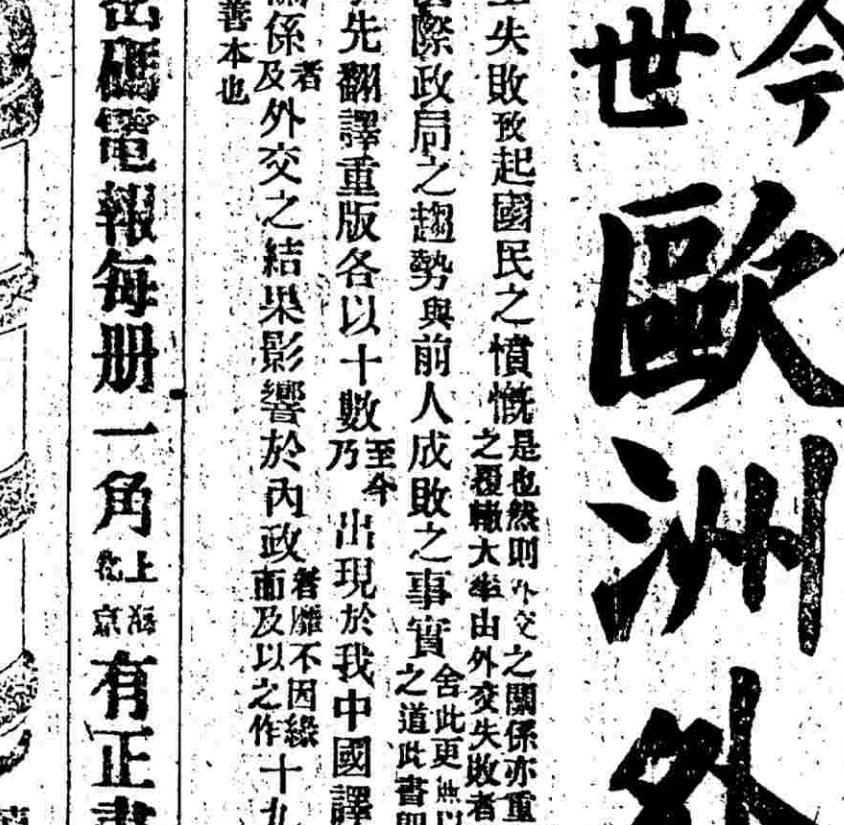 今
世歐洲外
失敗致起國民之憤慨是也然則外交之關係亦重
之覆轍大率由外交失敗者
際政局之趨勢與前人成敗之事實舍此更無以
之道此書
先翻譯重版各以十數至今
乃出現於我中國譯
係者
及外交之結果影響於內政者靡不因緣
而及以之作十九
善本也
密碼電報每册一角上海
北京有正書